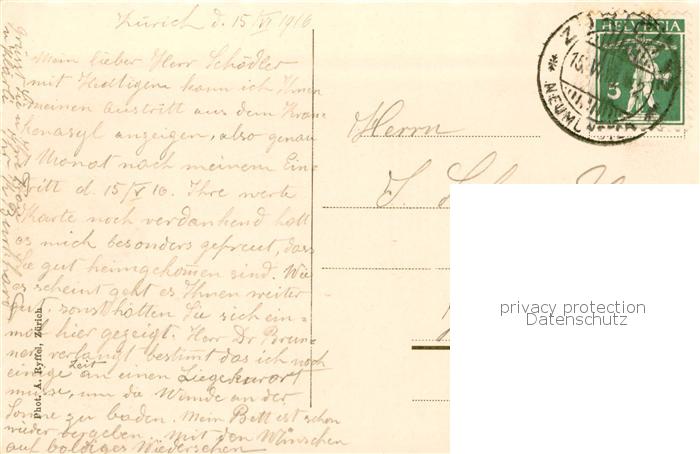 Zürich d. 15/VI 1916
Mein lieber Herr Schädler
mit Heutigem kann ich Ihnen
meinen Austritt aus dem Kran-
kenasyl anzeigen, also genau
1 Monat nach meinem Ein-
tritt d. 15/V 16. Ihre werte
Karte noch verdankend hatt
es mich besonders gefreut, dass
Sie gut heimgekommen sind. Wie
es scheint geht es Ihnen weiter
gut, sonst hätten Sie sich ein-
mal hier gezeigt. Herr Dr Brun-
ner verlangt bestimt das ich noch
einige Zeit an einen Liegekurort
müsse, um die Wunde an der
Sonne zu baden. Mein Bett ist schon
wieder vergeben. Mit den Wünschen
auf baldiges Wiedersehen
grüsst Sie
Phot. A. Ryffel, Zürich
Herrn
HELVETIA
5
NEUMÜNSTER
privacy protection
Datenschutz